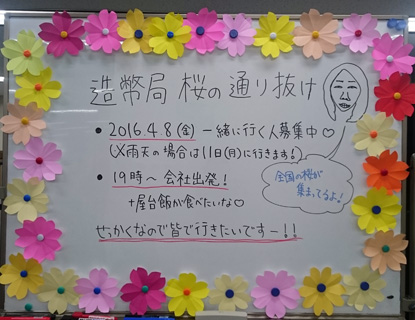 造幣局 桜の通り抜け
• 2016.4.8(金) 一緒に行く人募集中♡
(※雨天の場合は11日(月)に行きます!)
• 19時〜会社出発!
+屋台飯が食べたいな♡
せっかくなので皆で行きたいですー!!
全国の桜が
集まってるよ!